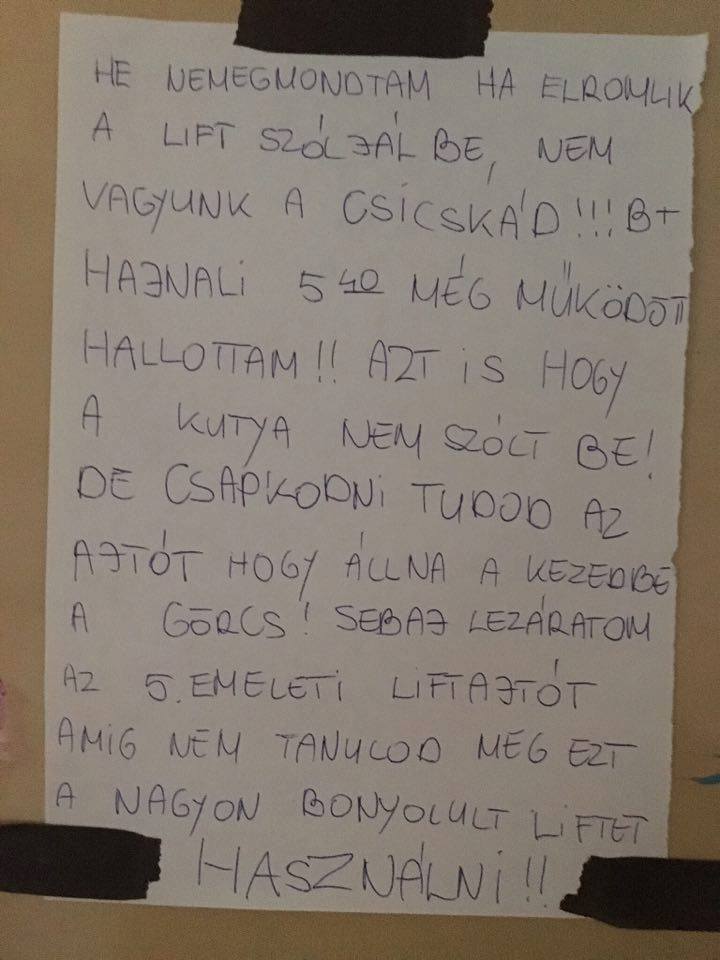 HE NEMEGMONDTAM HA ELROMLIK
A LIFT SZÓLJÁL BE, NEM
VAGYUNK A CSICSKÁD!!! B+
HAJNALI 5 40 MÉG MŰKÖDÖTT
HALLOTTAM!! AZT IS HOGY
A KUTYA NEM SZÓLT BE!
DE CSAPKODNI TUDOD AZ
AJTÓT HOGY ÁLLNA A KEZEDBE
A GÖRCS! SEBAJ LEZÁRATOM
AZ 5. EMELETI LIFTAJTÓT
AMIG NEM TANULOD MEG EZT
A NAGYON BONYOLULT LIFTET
HASZNÁLNI!!